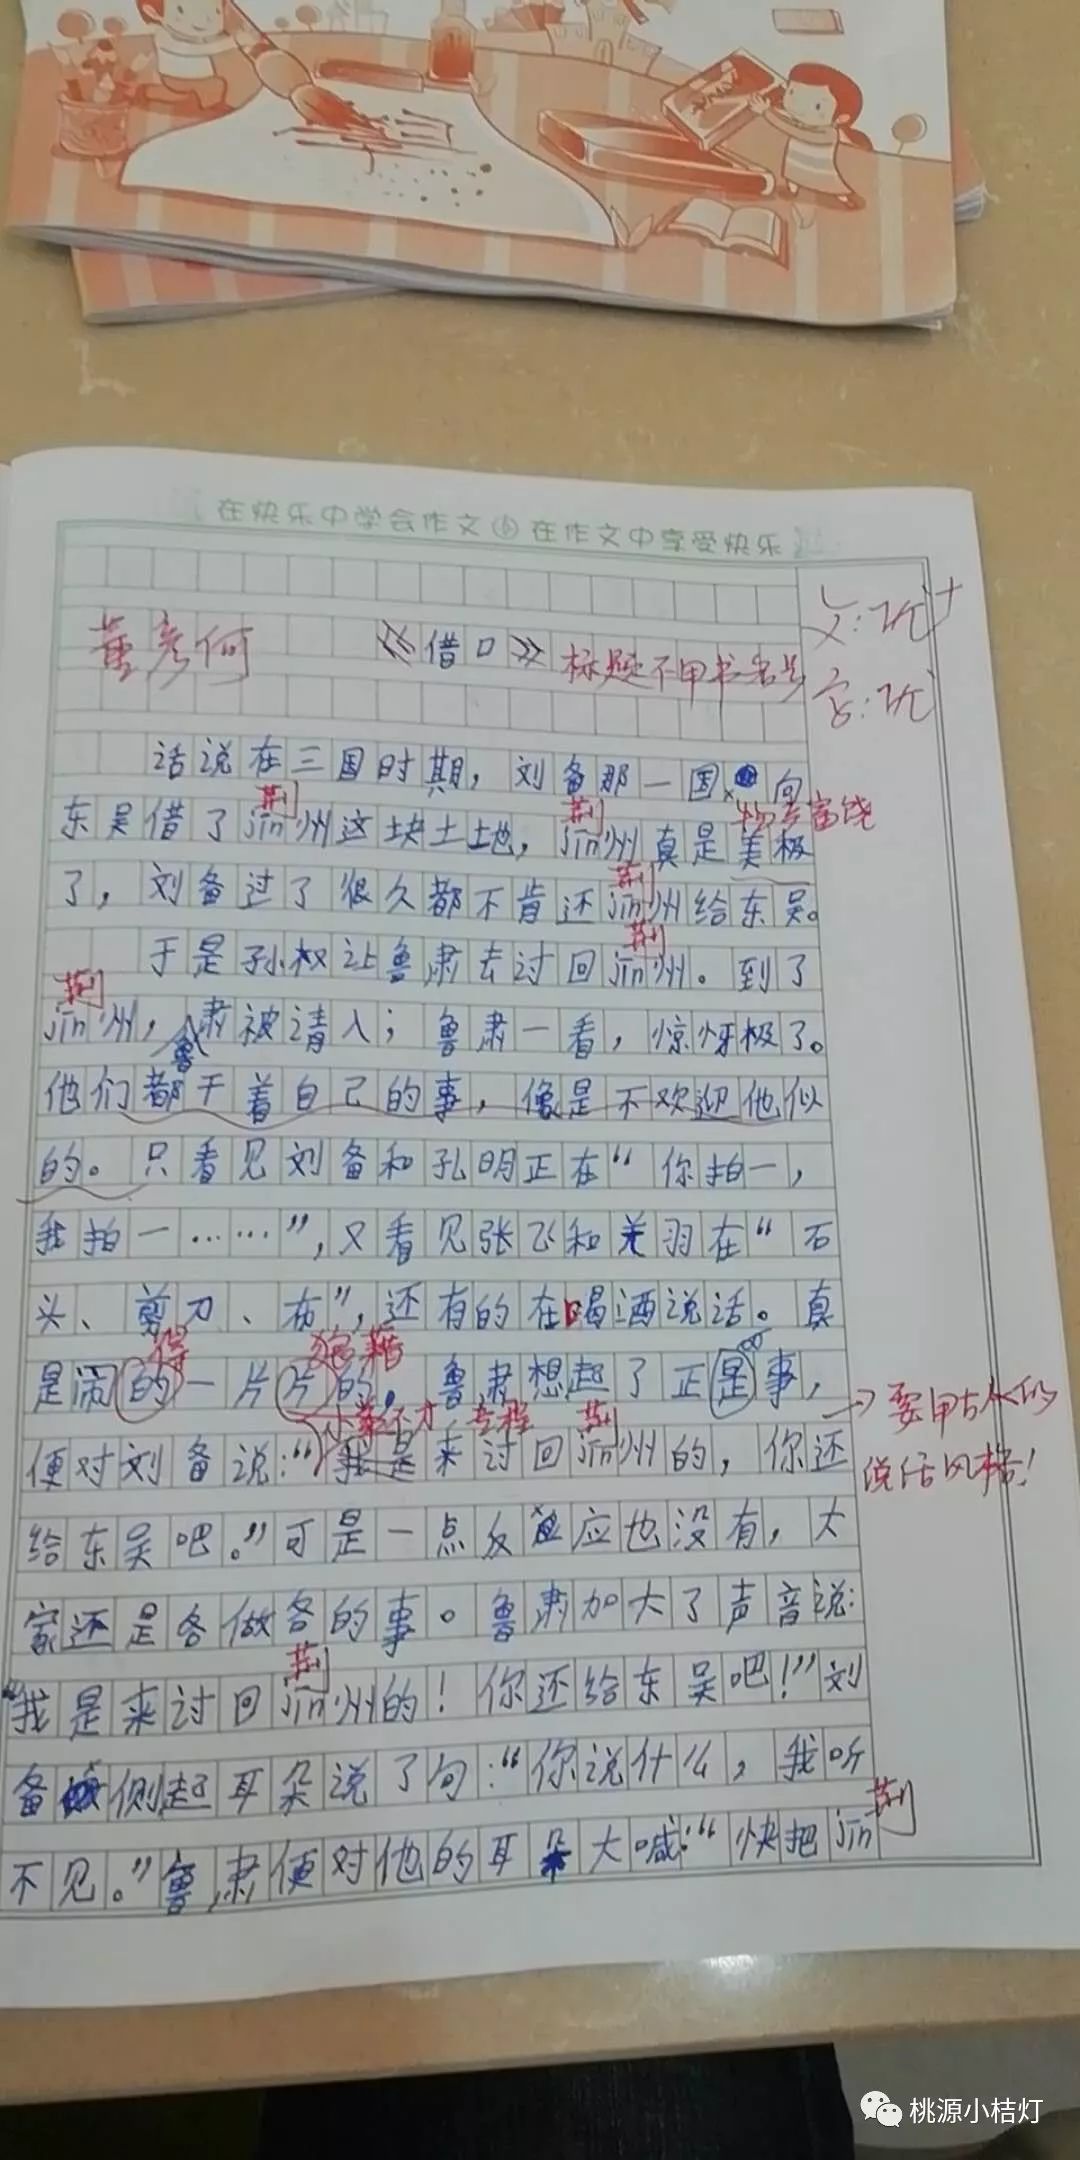 在快乐中学会作文 在作文中享受快乐
文:优+
董彦何 《借口》 标题不用书名号
字:优
话说在三国时期，刘备那一国，向
荆 荆 物产富饶
东吴借了jīn州这块土土地，jīn州真是美极
荆
了，刘备过了很久都不肯还jīn州给东吴。
荆
于是孙权让鲁肃去过回jīn州。到了
荆
jīn州，鲁肃被请入；鲁肃一看，惊讶极了。
他们都干着自己的事，像是不欢迎他似
的。只看见刘备和孔明正在“你拍一，
我拍一……”，又看见张飞和关羽在“石
头、剪刀、布”，还有的在喝酒说话。真
得 狼藉
是闹的一片片的，鲁肃想起了正是事，
小弟不才，专程 荆 →要用古人的
便对刘备说：“我是来讨回jīn州的，你还
说话风格！
给东吴吧。”可是一点反应也没有，大
家还是各做各的事。鲁肃加大了声音说：
荆
“我是来讨回jīn州的！你还给东吴吧！”刘
备侧起耳朵说了句：“你说什么，我听
荆
不见。”鲁肃便对他的耳朵大喊：“快把jīn
桃源小桔灯